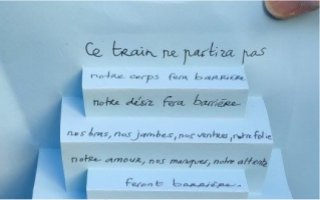 Ce train ne partira pas
notre corps fera barrière
notre désir fera barrière
nos bras, nos jambes, nos ventres, notre folie
notre amour, nos manques, notre attente
feront barrière.